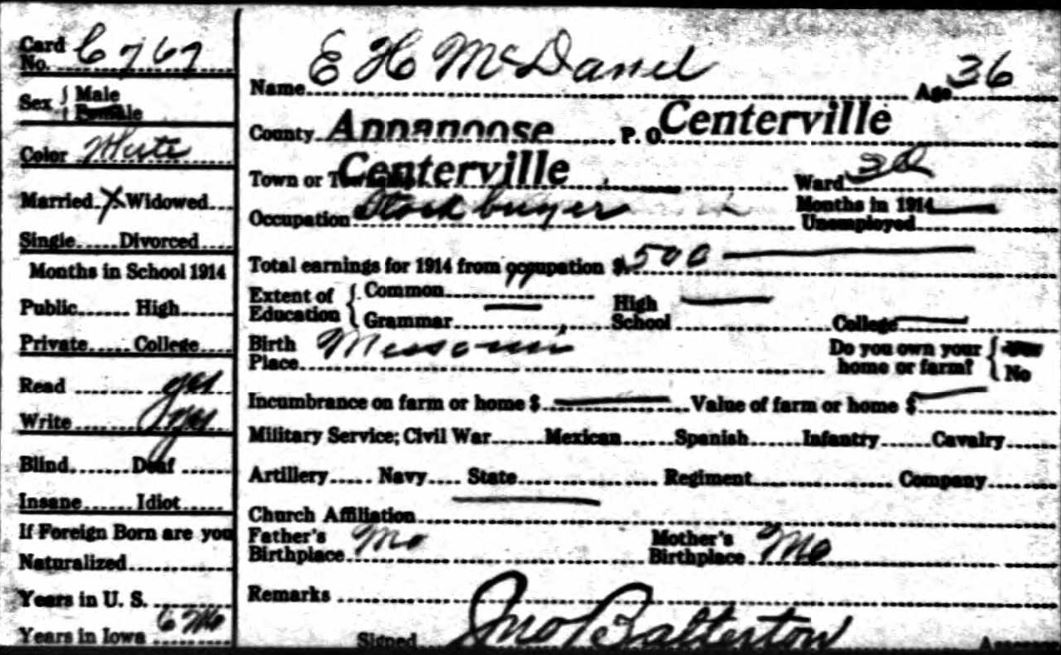 Card No. C767
Sex { Male Female
Color White
Married X Widowed
Single Divorced
Months in School 1914
Public High
Private College
Read yes
Write yes
Blind Deaf
Insane Idiot
If Foreign Born are you
Naturalized
Years in U. S.
Years in Iowa 6 Mo
Name E H McDanel Age 36
County Appanoose P. O. Centerville
Town or Township Centerville Ward 3d
Occupation Stock buyer Months in 1914 Unemployed
Total earnings for 1914 from occupation $ 500
Extent of Education { Common
Grammar High School College
Birth Place Missouri Do you own your home or farm? { No
Incumbrance on farm or home $ Value of farm or home $
Military Service; Civil War Mexican Spanish Infantry Cavalry
Artillery Navy State Regiment Company
Church Affiliation
Father's Birthplace Mo Mother's Birthplace Mo
Remarks
Signed Jno Balterton